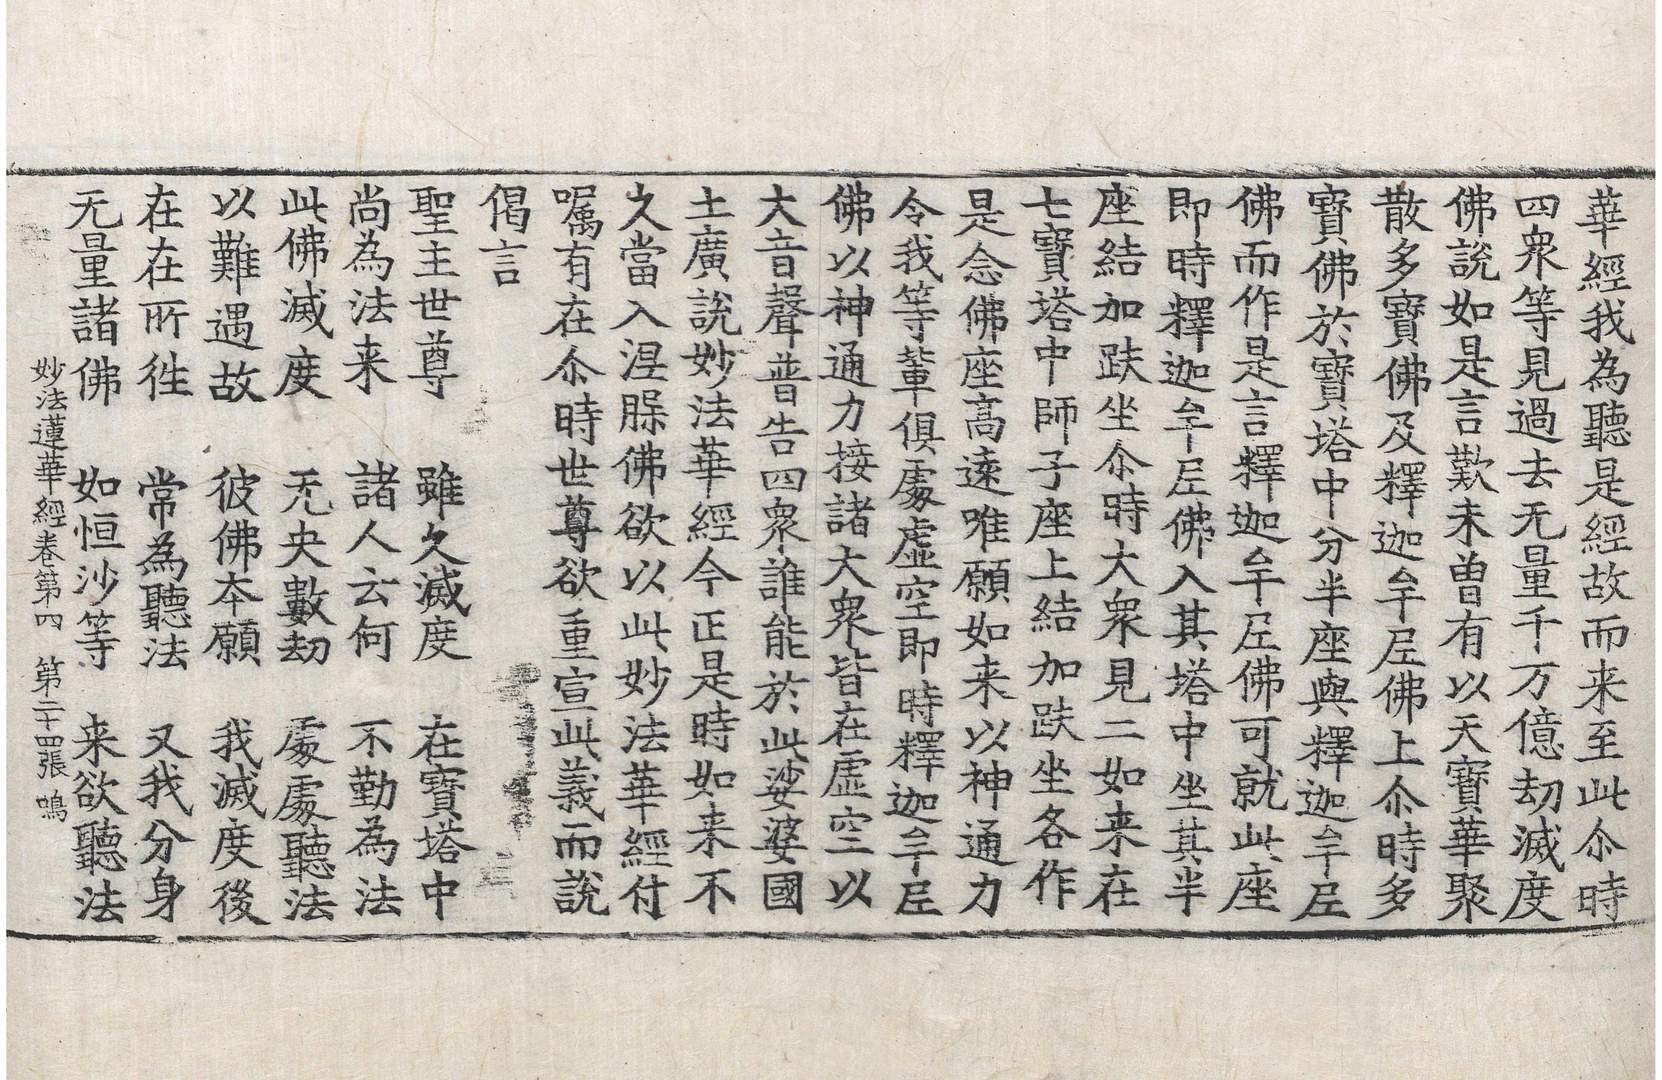 華經我為聽是經故而来至此尒時
四衆等見過去无量千万億劫滅度
佛說如是言歎未曾有以天寶華聚
散多寶佛及釋迦牟尼佛上尒時多
寶佛於寶塔中分半座與釋迦牟尼
佛而作是言釋迦牟尼佛可就此座
即時釋迦牟尼佛入其塔中坐其半
座結加趺坐尒時大衆見二如来在
七寶塔中師子座上結加趺坐各作
是念佛座高遠唯願如来以神通力
令我等輩俱處虛空即時釋迦牟尼
佛以神通力接諸大衆皆在虛空以
大音聲普告四衆誰能於此娑婆國
土廣說妙法華經今正是時如来不
久當入涅槃佛欲以此妙法華經付
嘱有在尒時世尊欲重宣此義而說
偈言
聖主世尊　雖久滅度　在寶塔中
尚為法来　諸人云何　不勤為法
此佛滅度　无央數劫　處處聽法
以難遇故　彼佛夲願　我滅度後
在在所徃　常為聽法　又我分身
无量諸佛　如恒沙等　来欲聽法
妙法蓮華經卷第四　第二十四張　鳴